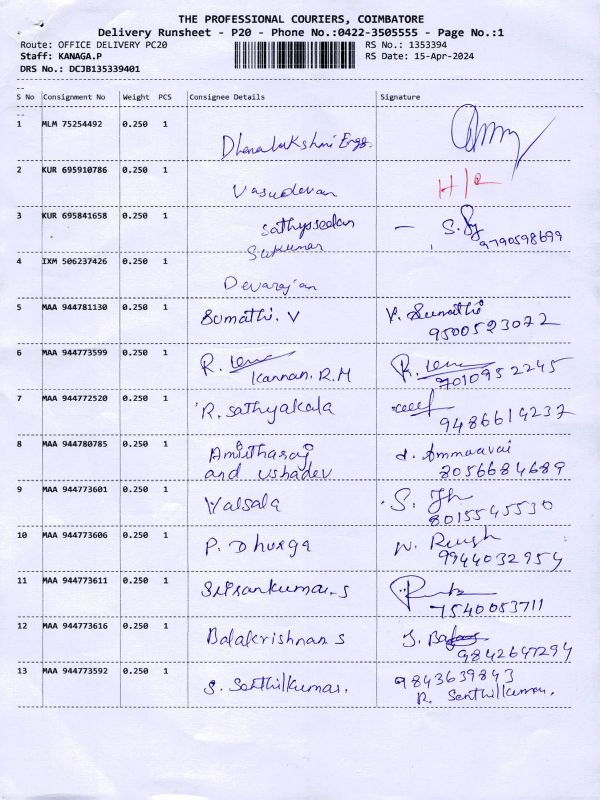 THE PROFESSIONAL COURIERS, COIMBATORE
Delivery Runsheet - P20 - Phone No.:0422-3505555 - Page No.:1
Route: OFFICE DELIVERY PC20 RS No.: 1353394
Staff: KANAGA.P RS Date: 15-Apr-2024
DRS No.: DCJB135339401
S No Consignment No Weight PCS Consignee Details Signature
1 MLM 75254492 0.250 1 Dhanalakshmi Engg.
2 KUR 695910786 0.250 1 Vasudevan
3 KUR 695841658 0.250 1 Sathyaseelan - S.
Sukumar 9790598699
4 IXM 506237426 0.250 1
Devarajan
5 MAA 944781130 0.250 1 Sumathi. V V. Sumathi
9500523022
6 MAA 944773599 0.250 1 R. R.
Kannan. R.M 7010952245
7 MAA 944772520 0.250 1 R. Sathyakala
9486614237
8 MAA 944780785 0.250 1 Amirtharaj d. Ammaavai
and Ushadev 8056684689
9 MAA 944773601 0.250 1 Valsala S.
8015545530
10 MAA 944773606 0.250 1 P. Dhurga N.
9944032954
11 MAA 944773611 0.250 1 SriSankumar.S
7540053711
12 MAA 944773616 0.250 1 Balakrishnan S
9842647294
13 MAA 944773592 0.250 1 S. Senthilkumar. 9843639843
R. Senthilkumar.